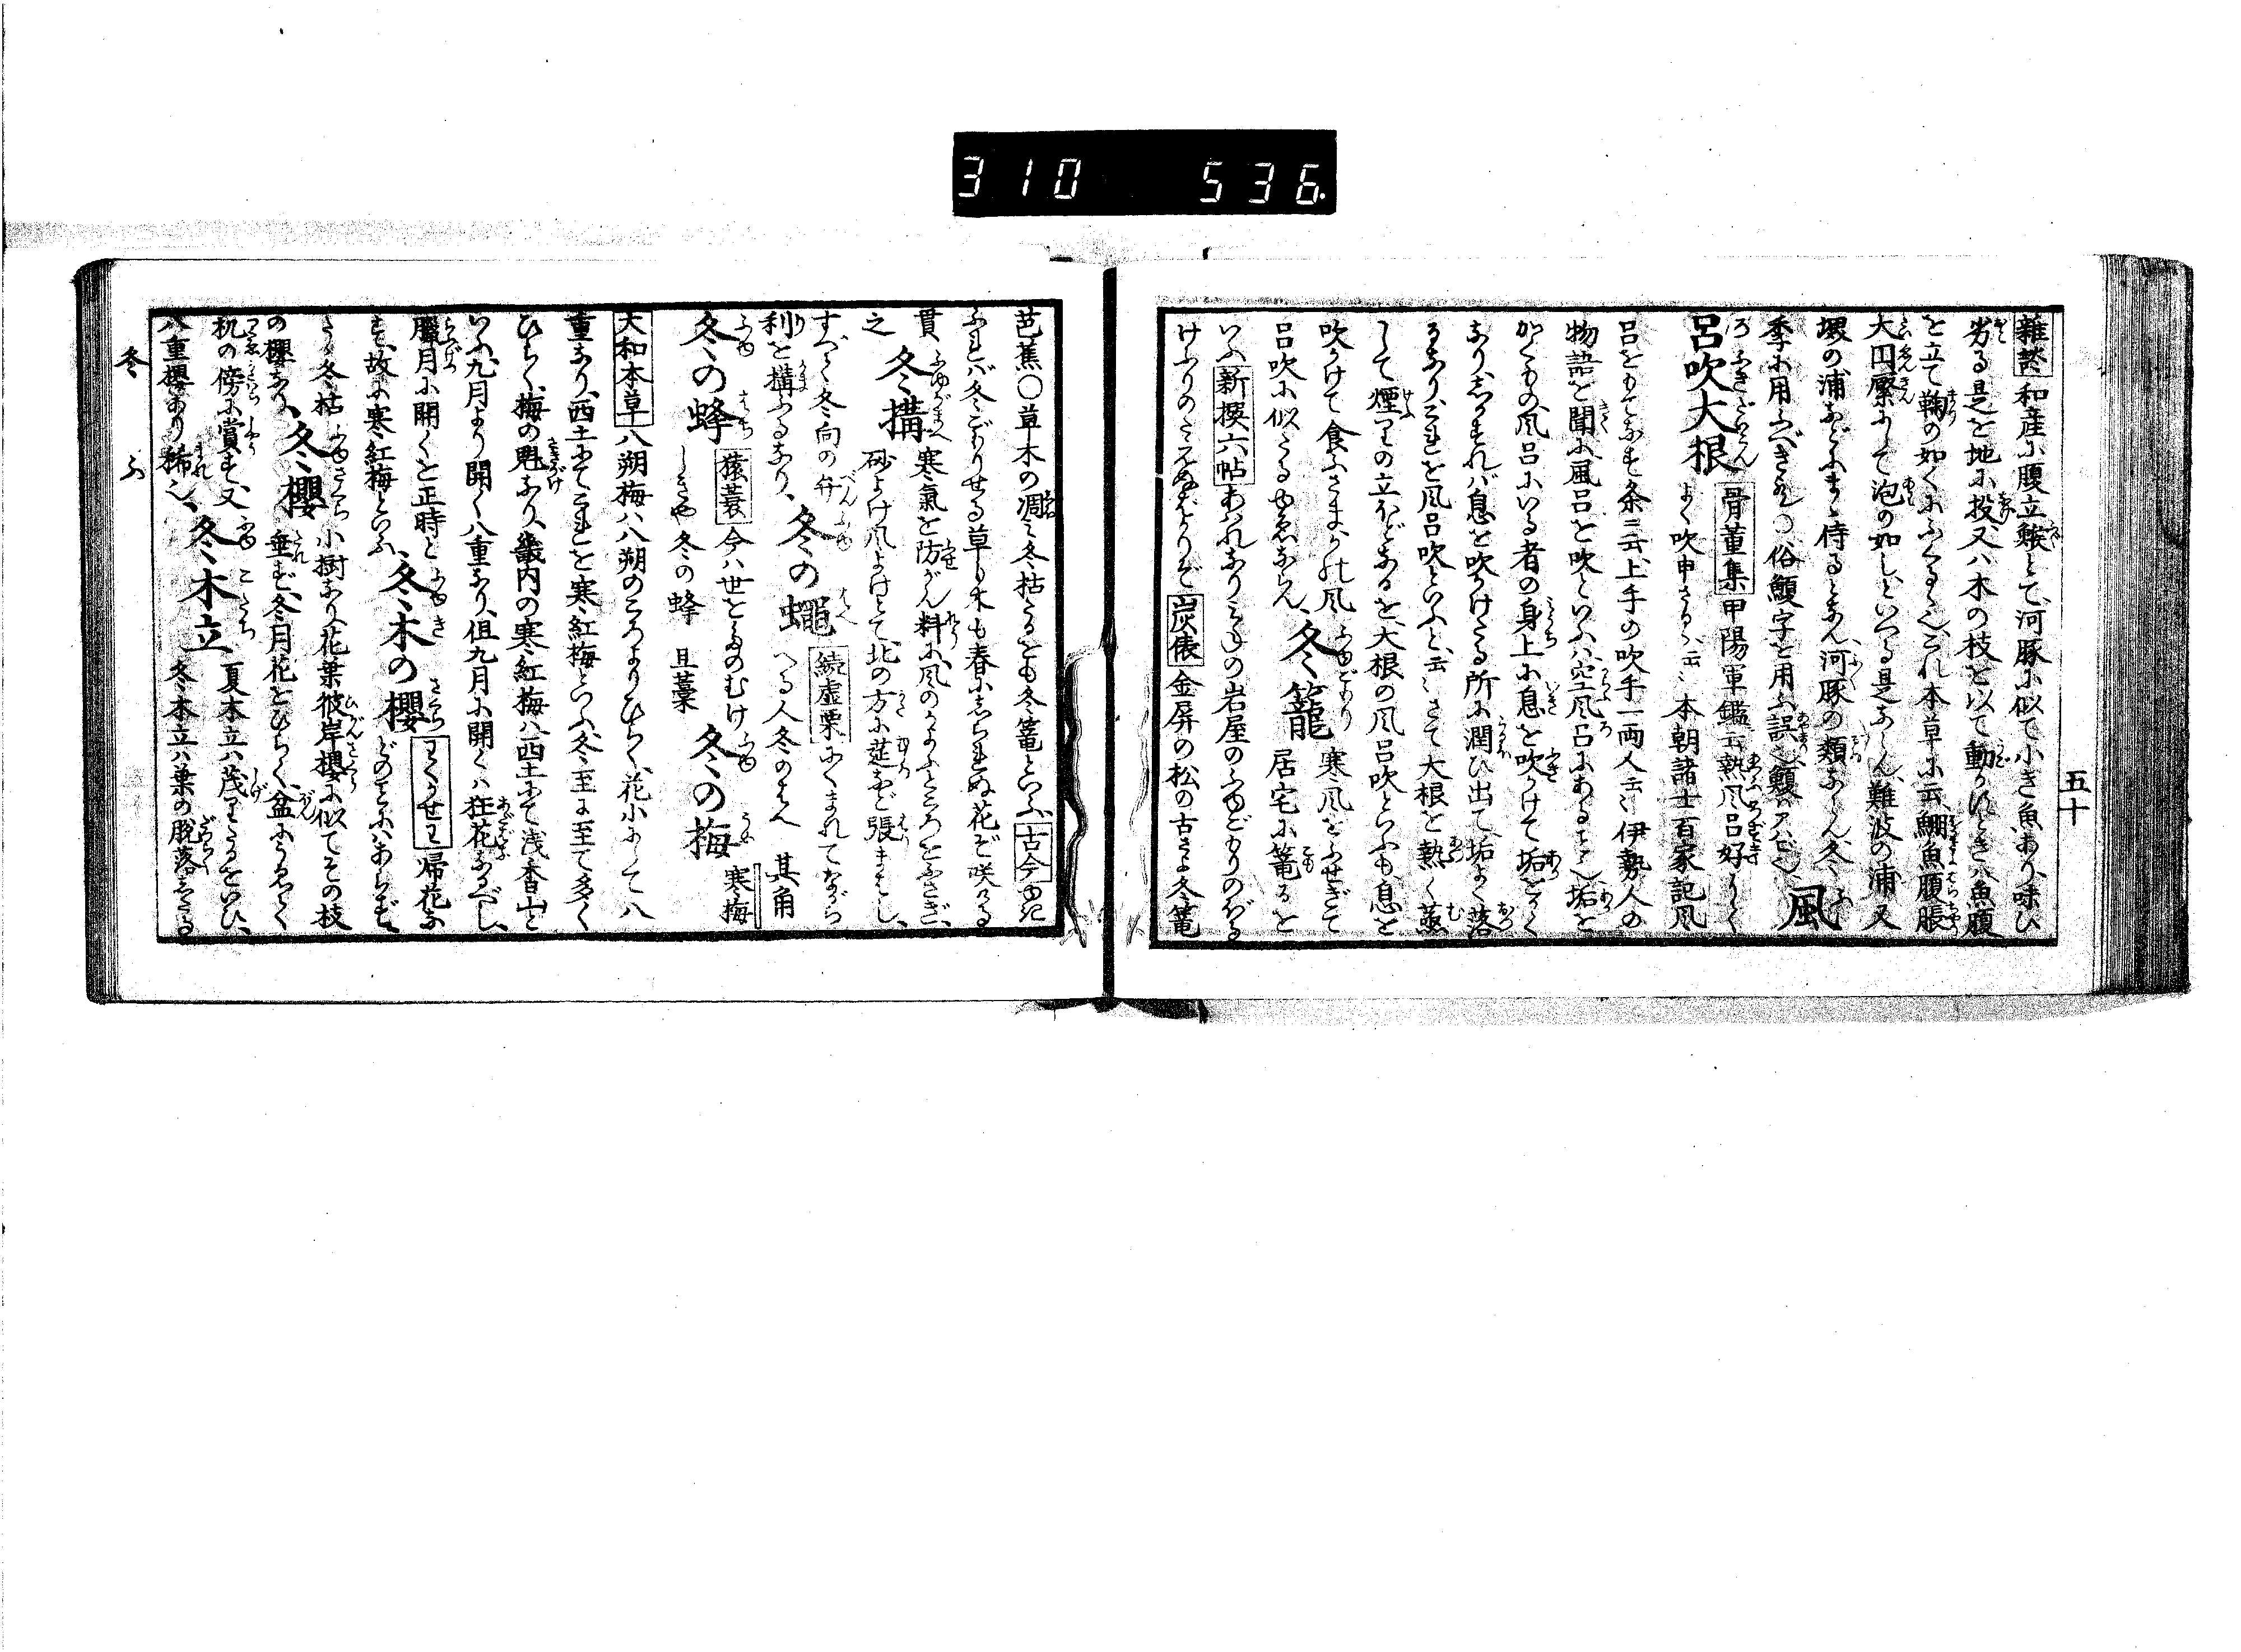 310 536
五十
雑談 和産に腹立鯸とて、河豚に似て小き魚あり、味ひ
劣る是を地に投、又ハ木の枝を以て動かすときハ魚腹
を立て鞠の如くにふくるゝ也、これ本草に云鯝魚腹脹
大円緊にして泡の如し、といへる是ならん、難波の浦又
堺の浦などにまゝ侍るとなん、河豚の類ならん、冬
季に用ふべきか○俗鰒字を用ふ誤也鰒ハアハビ也 風
呂吹大根 骨董集 甲陽軍鑑云熱風呂好かく
よく吹申さるゝ云〻本朝諸士百家記風
呂をもてなす条ニ云、上手の吹手一両人云〻伊勢人の
物語を聞に風呂を吹といふハ空風呂にあること也、垢を
かくもの風呂にいる者の身上に息を吹かけて垢をかく
なり、しかすれバ息を吹かけたる所に潤ひ出て、垢よく落
るなり、これを風呂吹といふと、云〻さて大根を熱く蒸
して煙りの立ほどなるを、大根の風呂吹といふも、息を
吹かけて食ふさまかの風
呂吹に似たるゆゑならん、 冬籠 寒風をふせぎて
居宅に篭るを
いふ 新撰六帖 あはれなりみ山の岩屋のふゆごもりのぼる
けふりのたえぬばかりぞ 炭俵 金屏の松の古さよ冬篭
芭蕉○草木の凋み冬枯たるをも冬篭といふ 古今
ふれバ冬ごもりせる草も木も春にしられぬ花ぞ咲ける
貫
之 冬構 寒氣を防がん料に、風のかよふところをふさぎ、
砂よけ風よけとて、北の方に莚など張まはし、
すべて冬向の弁
利を搆ふるなり、 冬の蠅 続虚栗 にくまれてながら
へる人冬のはへ 其角
冬の蜂 猿蓑 今ハ世をたのむけ
しきや冬の蜂 旦藁 冬の梅 寒梅
大和本草 八朔梅ハ八朔のころよりひらく、花小にして八
重なり、西土にて、これを寒紅梅といふ、冬至に至て多く
ひらく、梅の魁なり、畿内の寒紅梅ハ西土にて浅香山と
いふ、九月より開く八重なり、但九月に開くハ狂花なるべし、
臘月に開くを正時と
す、故に寒紅梅といふ、 冬木の櫻 わくかせわ 帰花な
どのことにハあらず、
たゞ冬枯
の櫻なり、 冬櫻 小樹なり、花葉彼岸櫻に似てその枝
垂ず、冬月花をひらく、盆にうゑて
机の傍に賞す、又
八重櫻あり稀也、 冬木立 夏木立ハ茂りたるをいひ、
冬木立ハ葉の脱落したる
冬 ふ